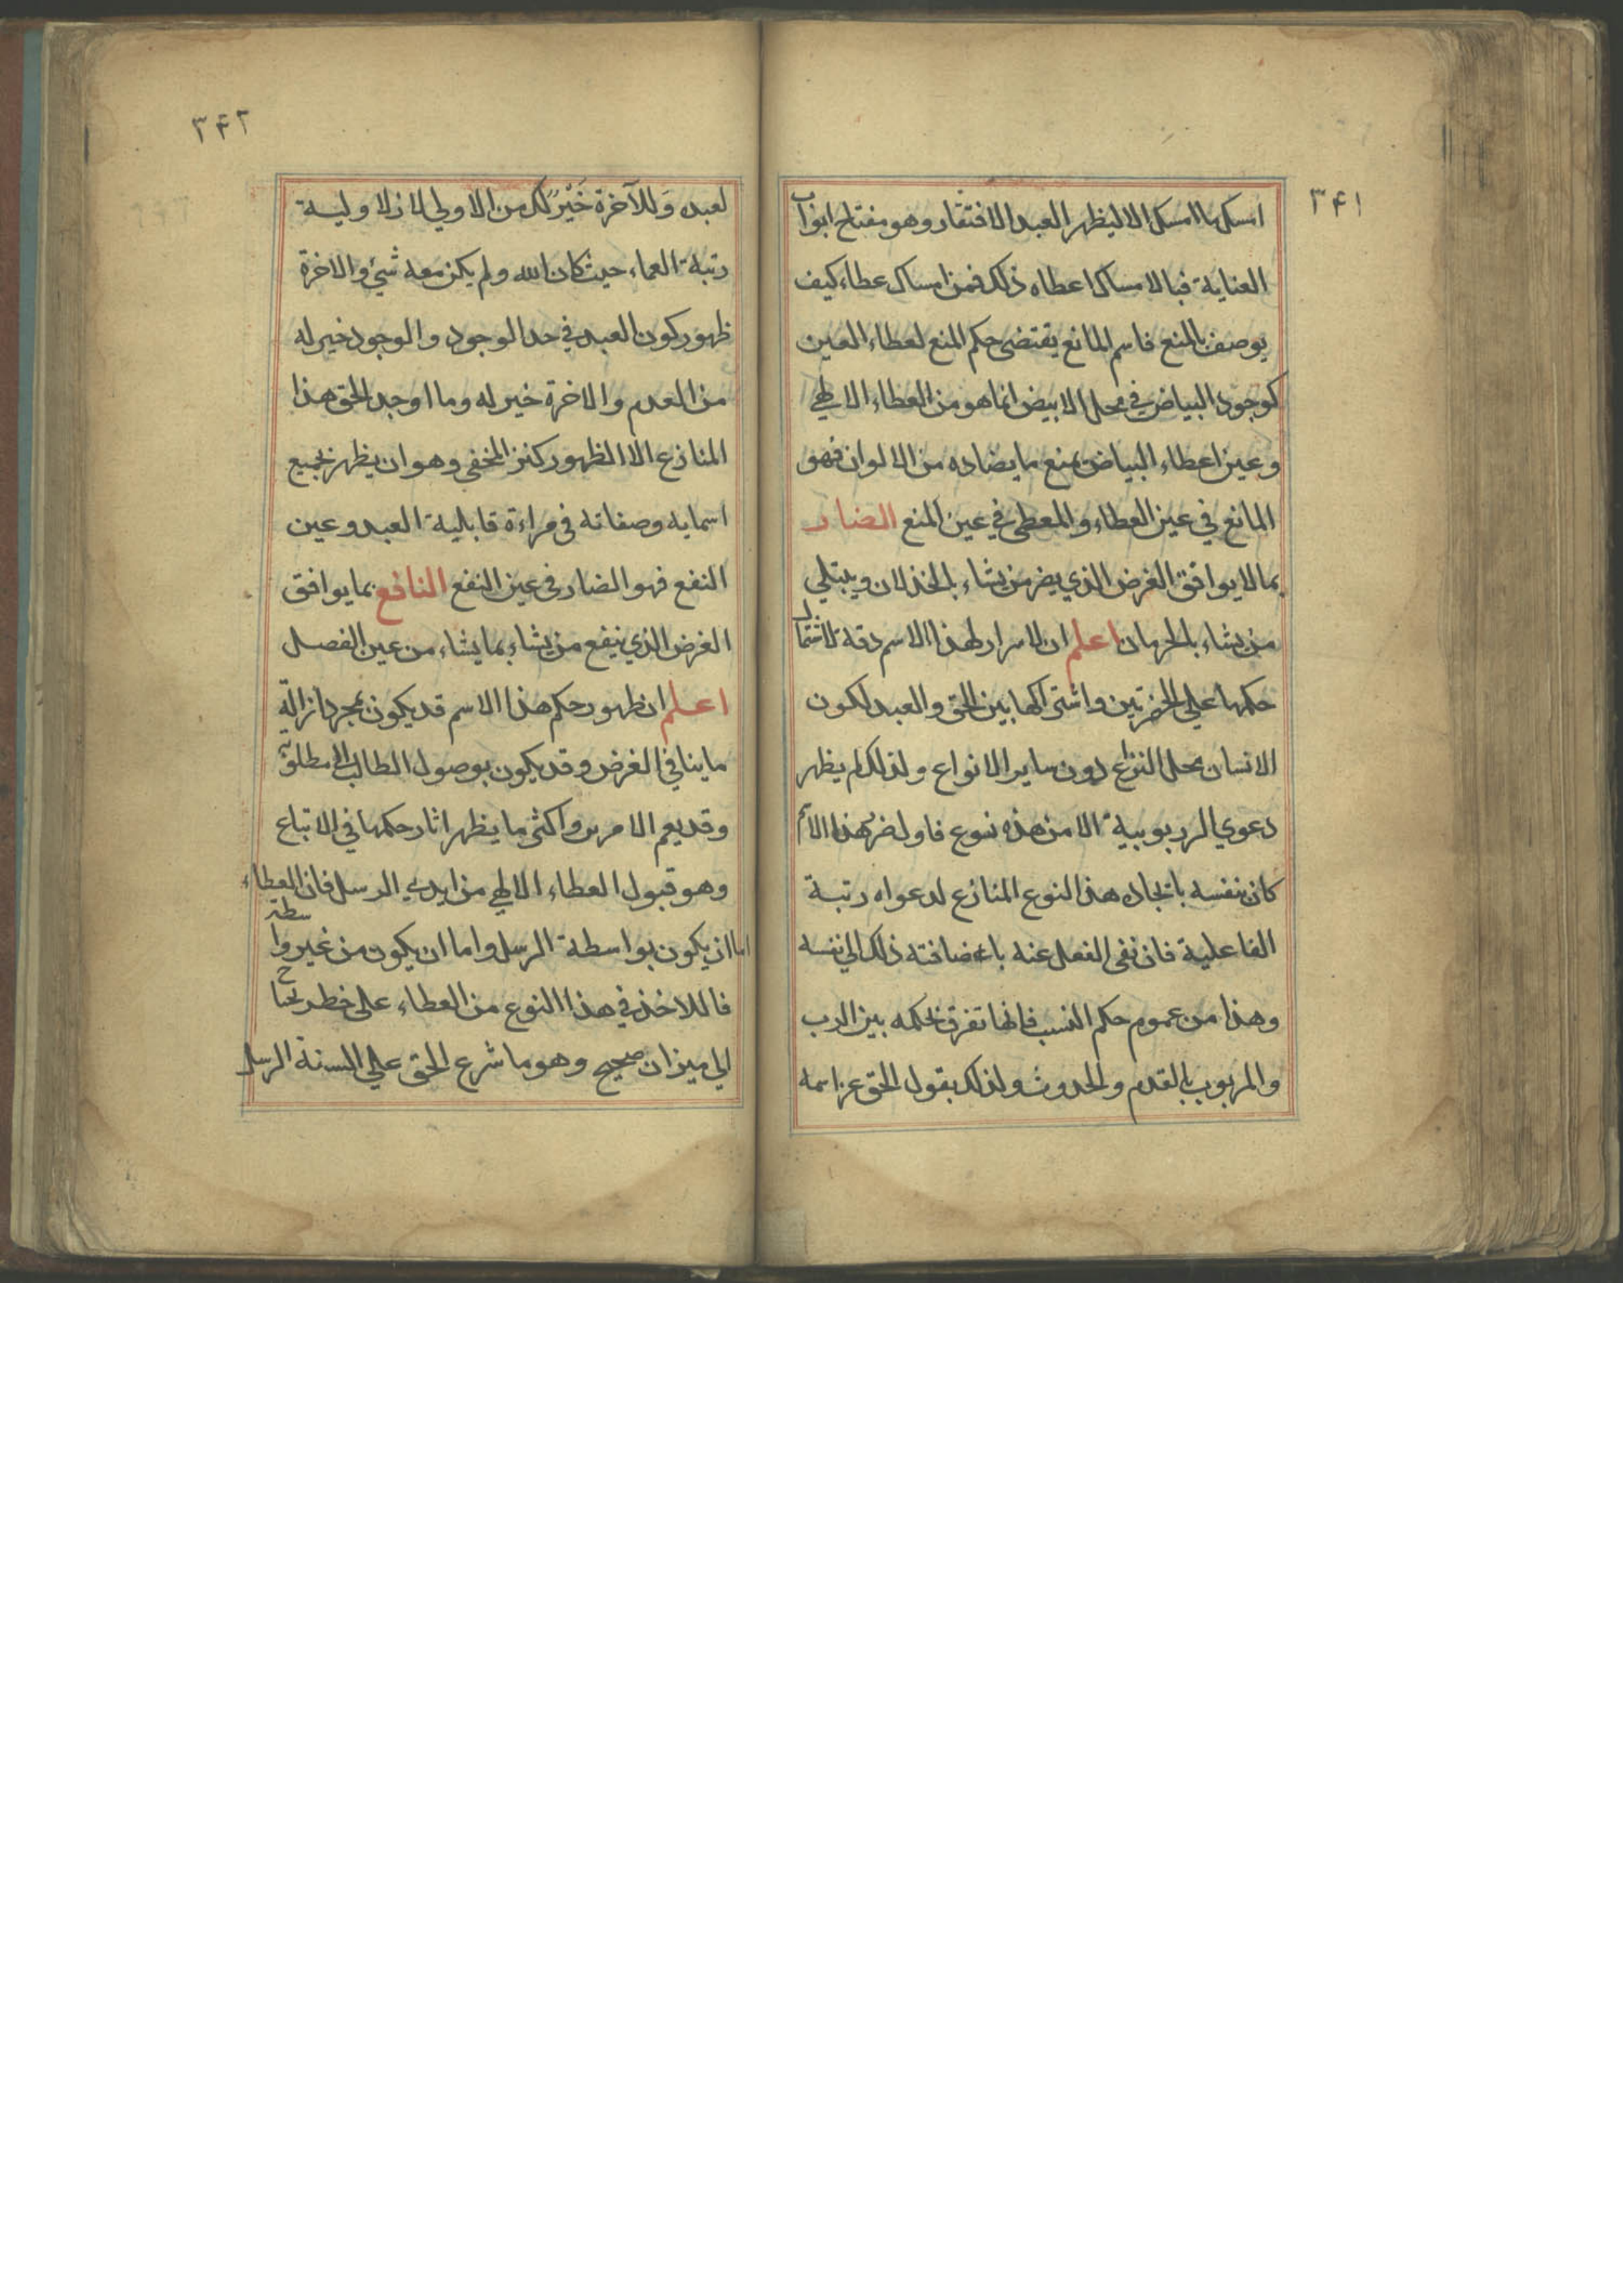 ٣۴١
امسك ما امسك الا ليظهر العبد الافتقار وهو مفتاح ابواب
العناية فبالامساك اعطاه ذلك فمن امساك عطاء كيف
يوصف بالمنع فاسم المانع يقتضى حكم المنع لعطاء العين
كوجود البياض في محل الابيض انما هو من العطاء الالهي
وعين اعطاء البياض منع ما يضاده من الالوان فهو
المانع في عين العطاء والمعطى في عين المنع الضار
بما لا يوافق الغرض الذي يضر من يشاء بالخذلان ويبتلي
من يشاء بالحرمان اعلم ان لاسرار لهذا الاسم دقة لاشتمال
حكمها على الحضرتين واشتراكها بين الحق والعبد لكون
الانسان محل النزاع دون ساير الانواع ولذلك لم يظهر
دعوي الربوبية الا من هذه نسوع فاول ضر هذا الاسم
كان بنفسه باتخاده هذا النوع المنازع لدعواه رتبة
الفاعلية فان نفى الفعل عنه باء ضافته ذلك الى نفسه
وهذا من عموم حكم النسب فانها تفرق بحكمه بين الرب
والمربوب بالقدم والحدوث ولذلك يقول الحق عز اسمه
٣۴٢
لعبده وَللآخرة خَيْرٌ لك من الاولي لان لاوليـة
رتبة العماء حيث كان الله ولم يكن معه شيء والاخرة
ظهور كون العبد في حد الوجود والوجود خير له
من العدم والاخرة خير له وما اوجد الحق هذا
المنازع الا الظهور كنز المخفي وهو ان يظهر بجميع
اسمايه وصفاته فى مراءة قابلية العبد وعين
النفع فهو الضار فى عين النفع النافع بما يوافق
الغرض الذي ينفع من يشاء بما يشاء من عين الفصل
اعلم ان ظهور حكم هذا الاسم قد يكون بمجرد ازالة
ما ينافي الغرض وقد يكون بوصول الطالب الى مطلوبه
وقد يعم الامرين واكثر ما يظهر اثار حكمها في الاتباع
وهو قبول العطاء الالهي من ايدي الرسل فان العطاء
اما ان يكون بواسطة الرسل واما ان يكون من غير واسطة
فاللاخذ في هذا النوع من العطاء على خطر يحتاج
الي ميزان صحيح وهو ما شرع الحق علي السنة الرسل